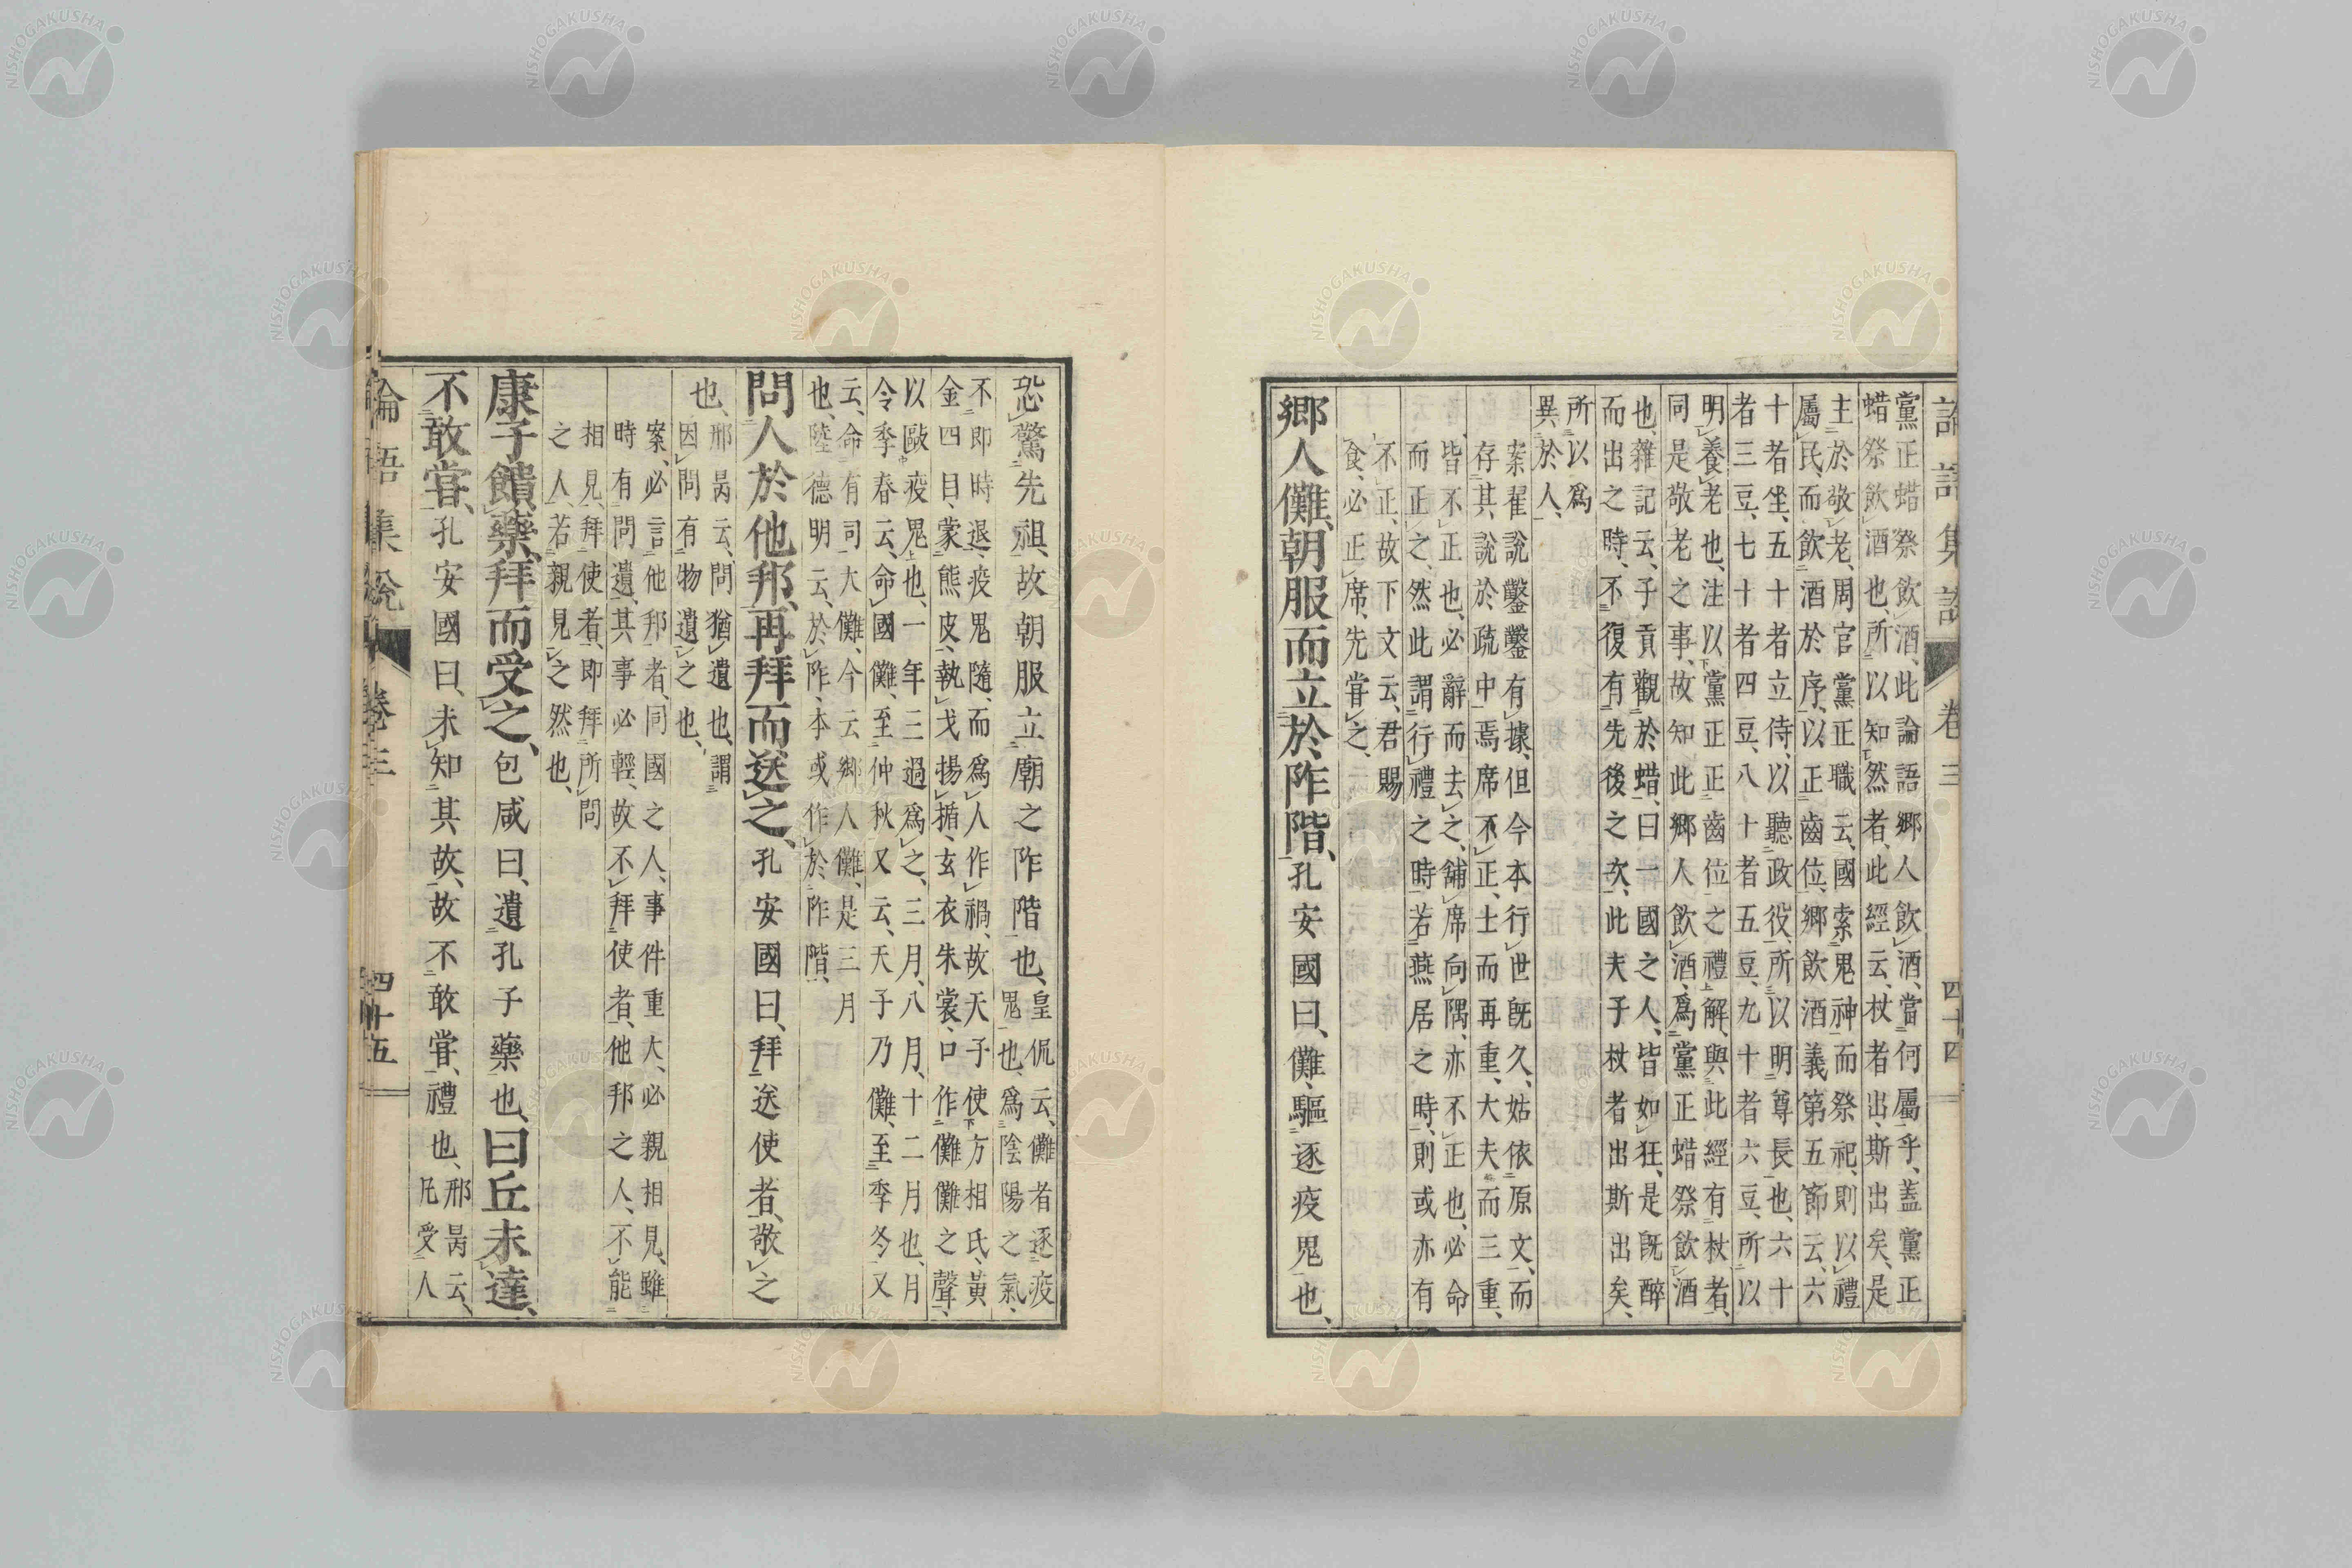 論語集說 卷三 四十四
黨正蜡祭飲酒、此論語鄉人飲酒、當何屬乎、蓋黨正
蜡祭飲酒也、所以知然者、此經云、杖者出、斯出矣、是
主於敬老、周官黨正職云、國索鬼神而祭祀、則以禮
屬民、而飲酒於序、以正齒位、鄉飲酒義第五節云、六
十者坐、五十者立侍、以聽政役、所以明尊長也、六十
者三豆、七十者四豆、八十者五豆、九十者六豆、所以
明養老也、注以黨正正齒位之禮解、與此經有杖者、
同是敬老之事、故知此鄉人飲酒、爲黨正蜡祭飲酒
也、雜記云、子貢觀於蜡、曰一國之人、皆如狂、是既醉
而出之時、不復有先後之次、此夫子杖者出斯出矣、
所以爲
異於人、
案翟說鑿鑿有據、但今本行世既久、姑依原文、而
存其說於疏中焉、席不正、士而再重、大夫而三重、
皆不正也、必辭而去之、舖席向隅、亦不正也、必命
而正之、然此謂行禮之時、若燕居之時、則或亦有
不正、故下文云、君賜
食、必正席、先嘗之、
鄉人儺、朝服而立於阼階、孔安國曰、儺、驅逐疫鬼也、
恐驚先祖、故朝服立廟之阼階也、皇侃云、儺者逐疫
鬼也、爲陰陽之氣、
不即時退、疫鬼隨、而爲人作禍、故天子使方相氏、黃
金四目、蒙熊皮、執戈揚楯、玄衣朱裳、口作儺儺之聲、
以敺疫鬼也、一年三過爲之、三月、八月、十二月也、月
令季春云、命國儺、至仲秋又云、天子乃儺、至季冬又
云、命有司大儺、今云鄉人儺、是三月
也、陸德明云、於阼、本或作於阼階、
問人於他邦、再拜而送之、孔安國曰、拜送使者、敬之
也、邢昺云、問猶遺也、謂
因問有物遺之也、
案、必言他邦者、同國之人、事件重大、必親相見、雖
時有問遺、其事必輕、故不拜使者、他邦之人、不能
相見、拜使者、即拜所問
之人、若親見之然也、
康子饋藥、拜而受之、包咸曰、遺孔子藥也、曰丘未達、
不敢嘗、孔安國曰、未知其故、故不敢嘗、禮也、邢昺云、
凡受人
論語集說 卷三 四十五
NISHOGAKUSHA